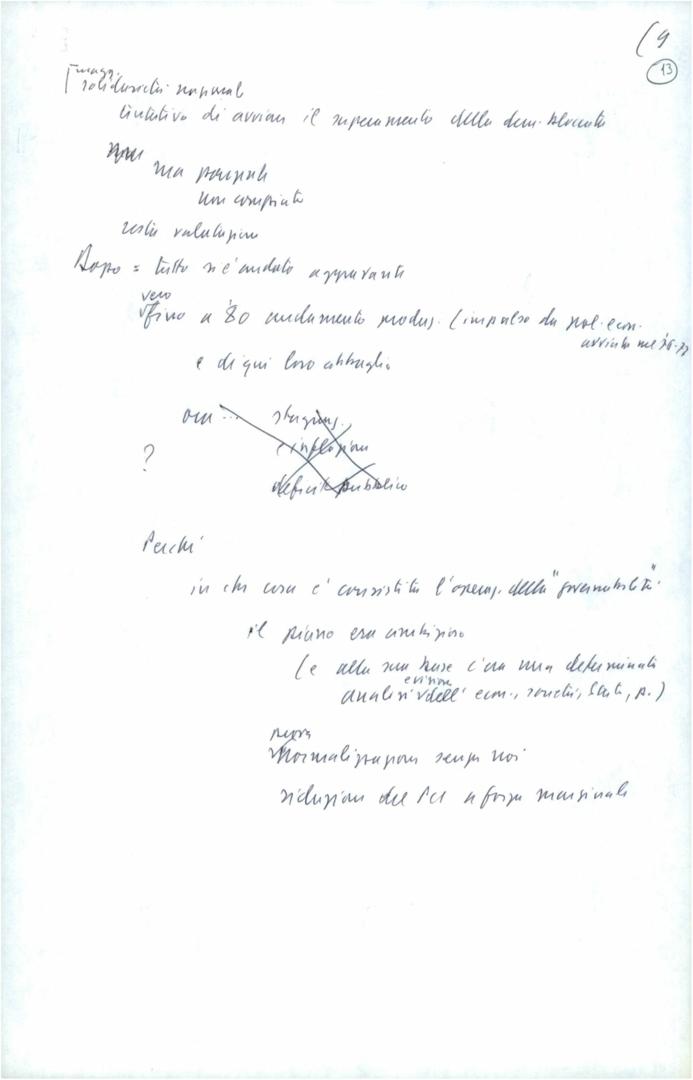 (9
13
magg.
solidarietà nazional
tentativo di avviare il superamento della dem. bloccata
ma parziale
non compiuto
resta valutazione
Dopo = tutto si è andato aggravante
vero
fino a '80 andamento produz. (impulso da pol. econ.
avviata nel '76-77
e di qui loro abbaglio
ora ... stagnaz.
? e inflazione
deficit pubblico
Perché
in che cosa è consistita l'operaz. della "governabilità"
il piano era ambizioso
(e alla sua base c'era una determinata
e visione
analisi dell' econ., società, Stato, p.)
nuova
Normalizzazione senza noi
riduzione del PCI a forza marginale